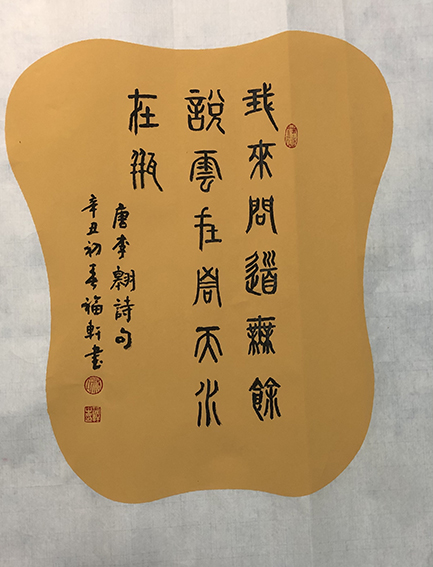 我來問道無餘
說雲在青天水
在瓶
唐李翱詩句
辛丑初春福軒書